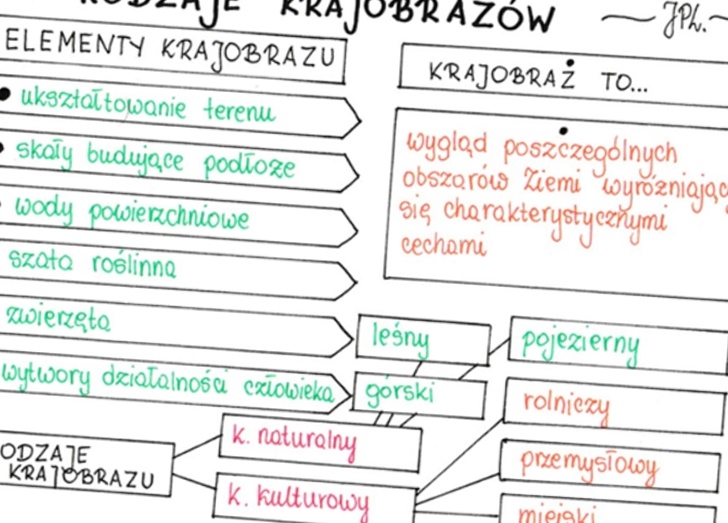 RODZAJE KRAJOBRAZÓW
JPL.
ELEMENTY KRAJOBRAZU
ukształtowanie terenu
skały budujące podłoże
wody powierzchniowe
szata roślinna
zwierzęta
wytwory działalności człowieka
KRAJOBRAZ TO...
wygląd poszczególnych
obszarów Ziemi wyróżniając
się charakterystycznymi
cechami
leśny
górski
pojezierny
rolniczy
przemysłowy
miejski
ODZAJE
KRAJOBRAZU
k. naturalny
k. kulturowy